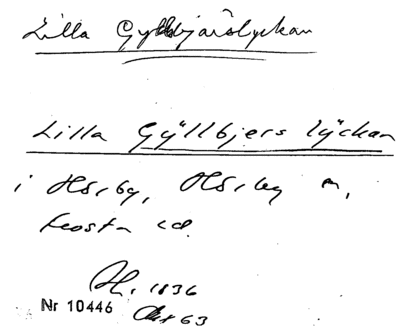 Lilla Gyllbjärslyckan
Lilla Gyllbjers lyckan
i Hörby, Hörby
Frosta
1836
Nr 10446 Akt 63